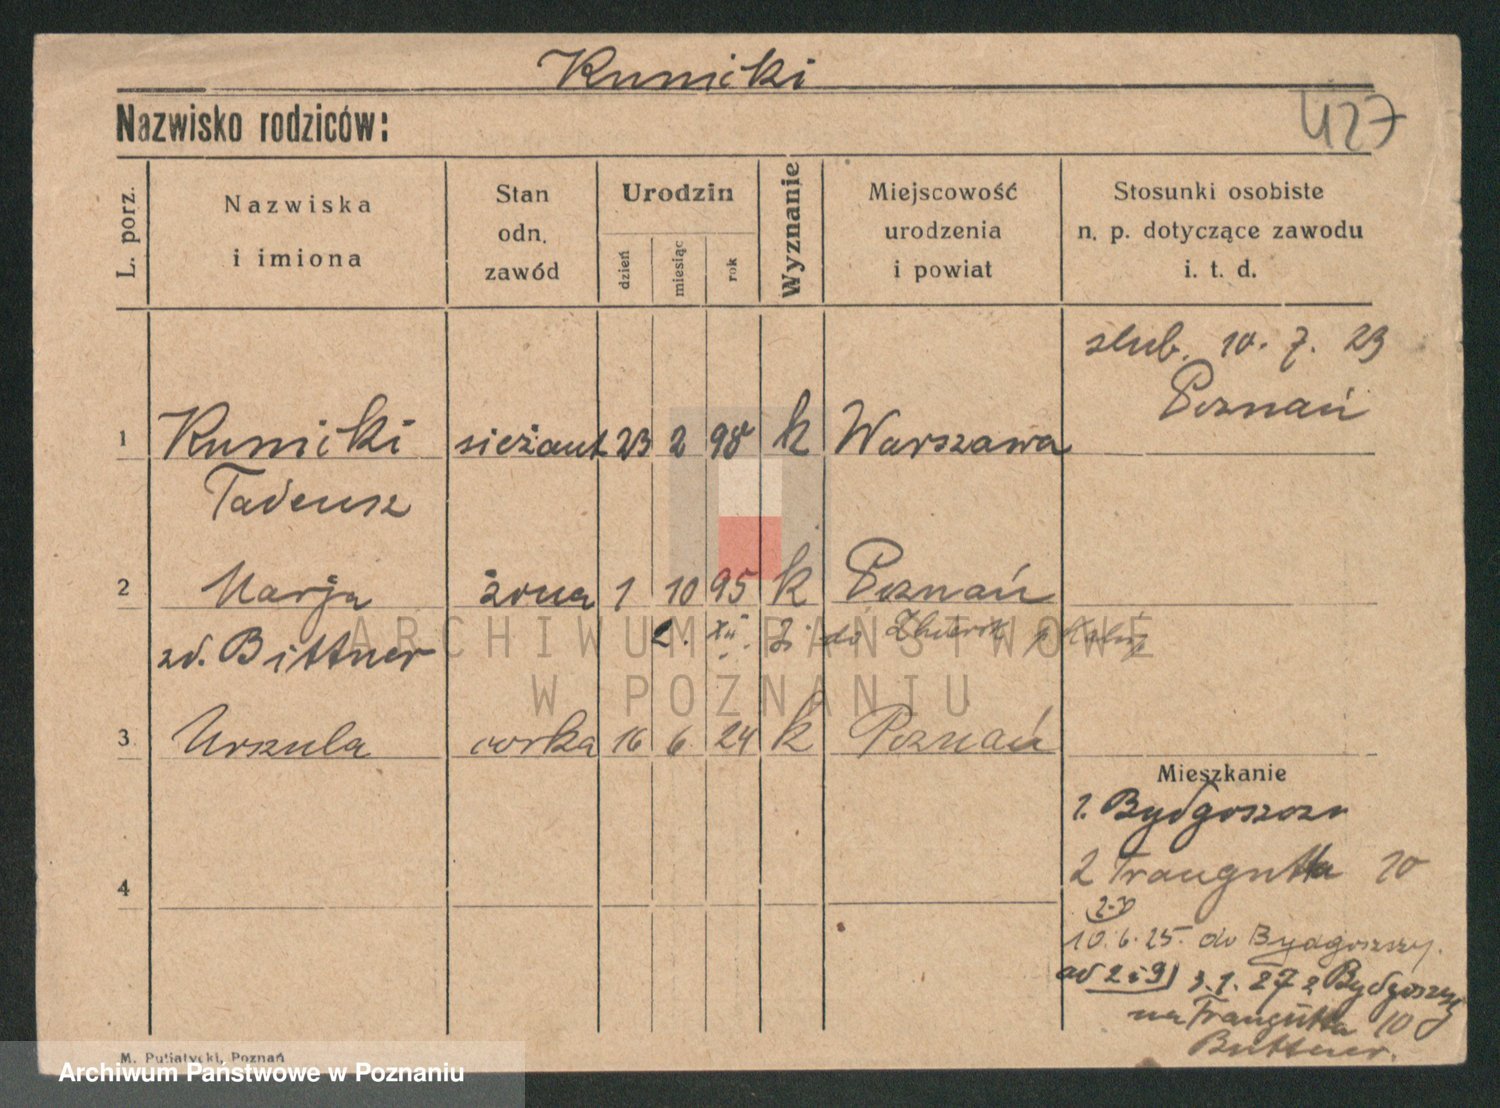 Kunicki
Nazwisko rodziców:
427
L. porz.
Nazwiska
i imiona
Stan
odn.
zawód
Urodzin
dzień
miesiąc
rok
Wyznanie
Miejscowość
urodzenia
i powiat
Stosunki osobiste
n. p. dotyczące zawodu
i. t. d.
slub. 10. 7. 23
Poznań
1 Kunicki sieżant 23 2 98 k Warszawa
Tadeusz
2 Marja żona 1 10 95 k Poznań
zd. Bittner 2. XII. do
3 Urszula corka 16 6 24 k Poznań
Mieszkanie
1. Bydgoszcz
2 Traugutta 10
4
10.6.25. do Bydgoszczy.
ad 2 i 3) 3.1.27 z Bydgoszczy
na Traugutta 10
Buttner.
M. Putiatycki, Poznań
ARCHIWUM PAŃSTWOWE
W POZNANIU
Archiwum Państwowe w Poznaniu